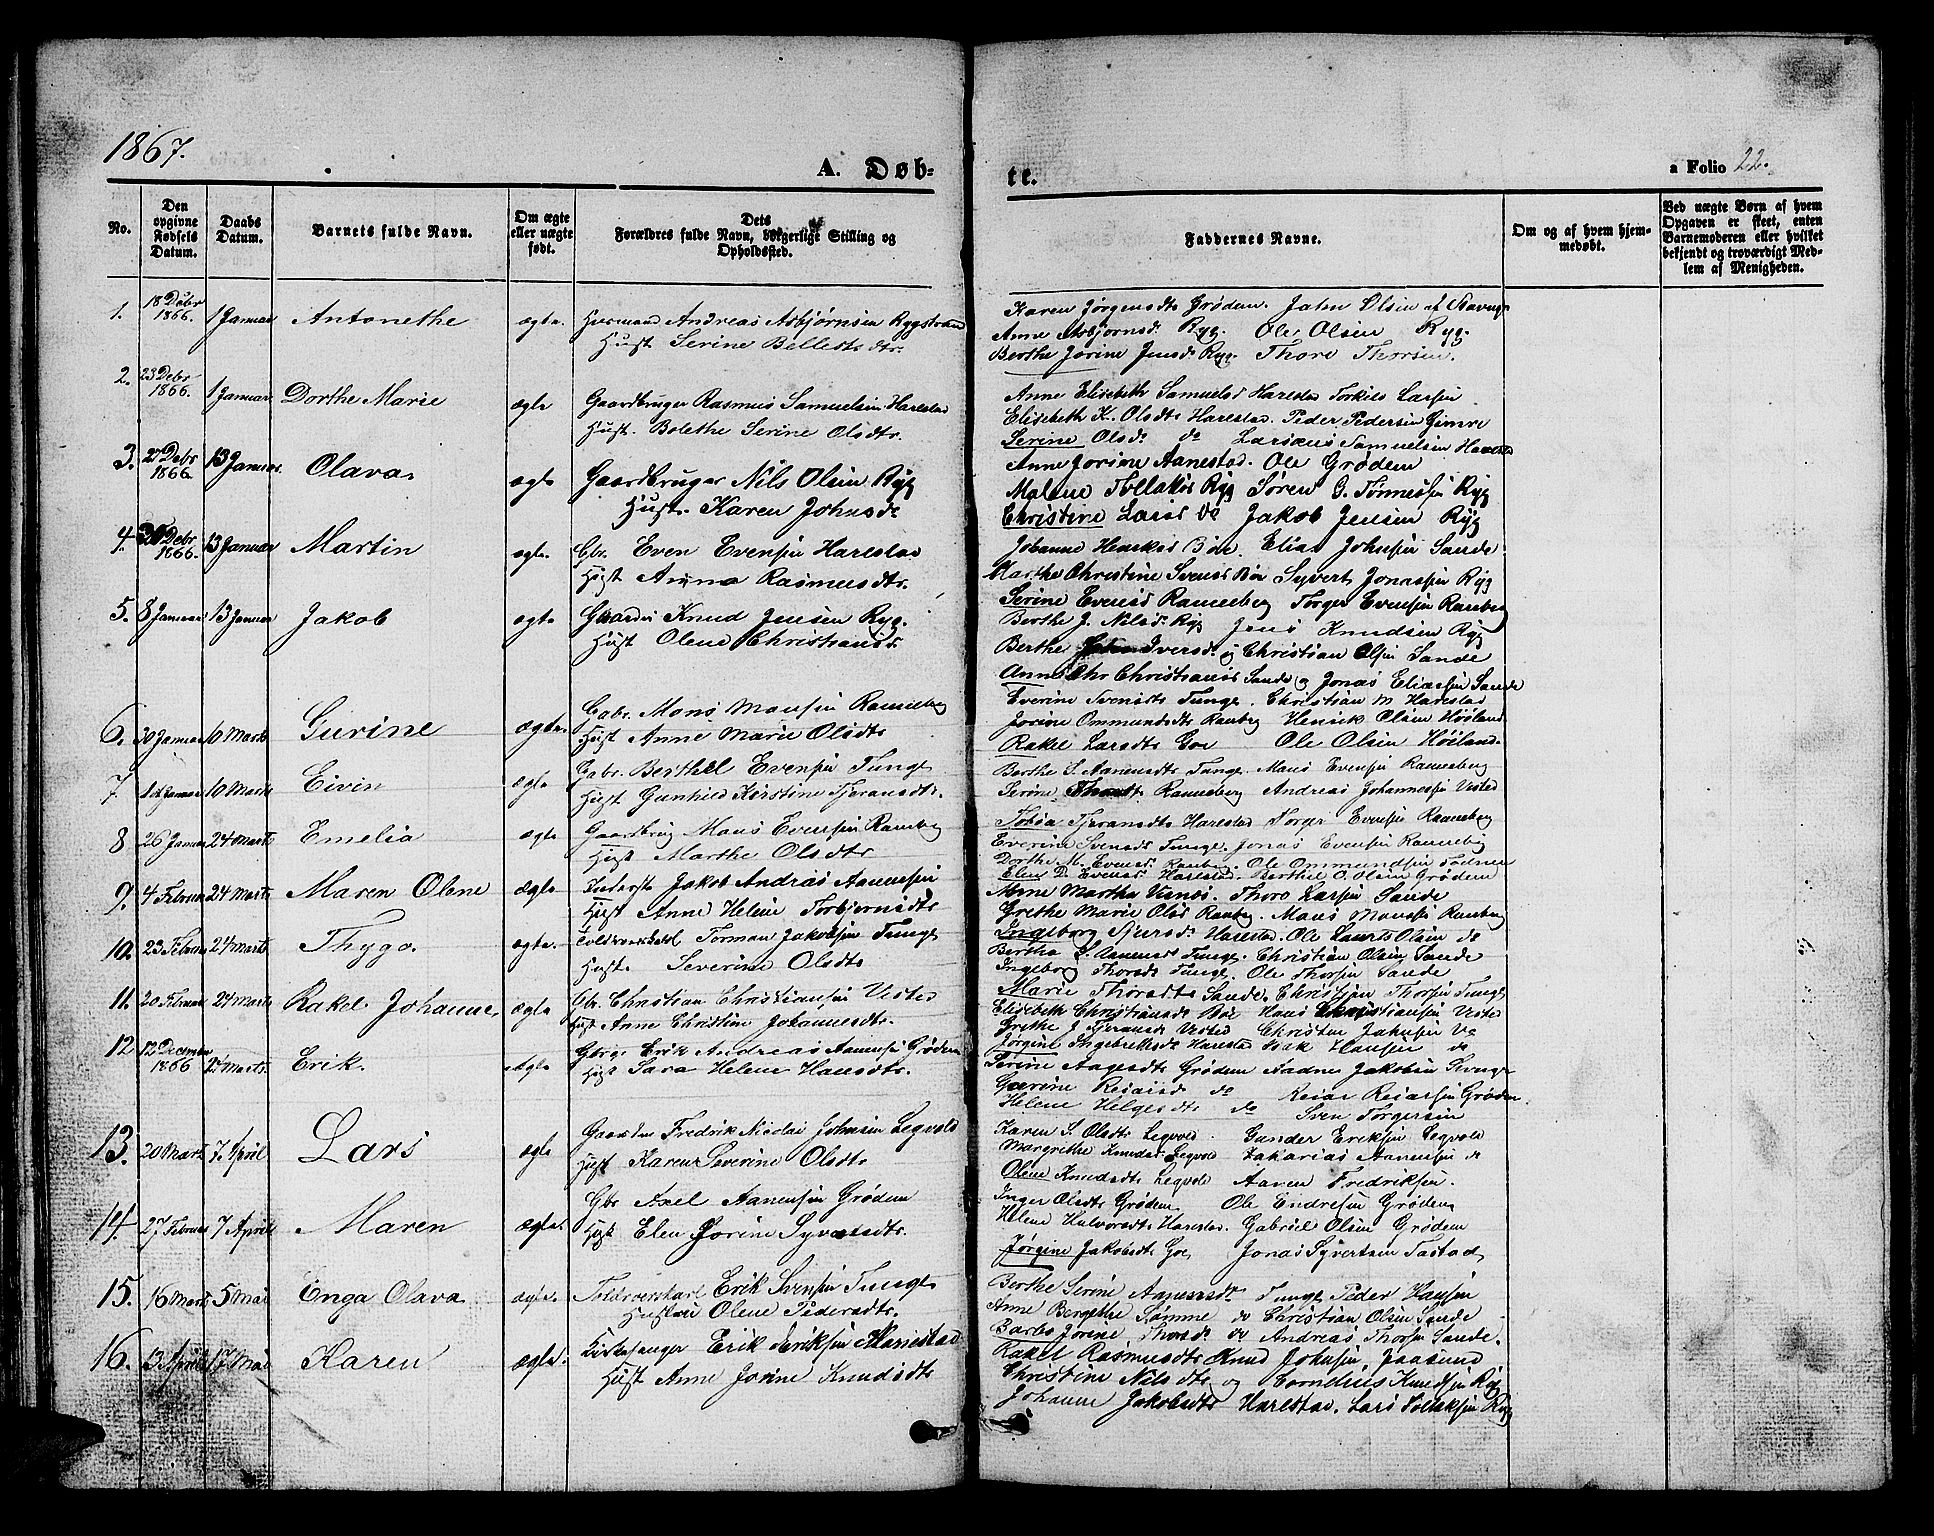 1867.
A. Døb-
te.
a Folio 22.
No.
Den opgivne Fødsels Datum.
Daabs Datum.
Barnets fulde Navn.
Om ægte eller uægte født.
Dets Forældres fulde Navn, borgerlige Stilling og Opholdssted.
Faddernes Navne.
Om og af hvem hjemmedøbt.
Ved uægte Børn af hvem Opgaven er skeet, enten Barnemoderen eller hvilket bekjendt og troværdigt Medlem af Menigheden.
1. 18 Debr 1866. 1 Januar Antonethe ægte. Huusmand Andreas Asbjørnsen Rygstrand
Hust Serine Bellestsdtr.
Karen Jørgensdtr Grødem. Jaten Olsen af Stavngr
Anne Asbjornsd. Ryg. Ole Olsen Ryg.
Berthe Jorine Jensd Ryg. Thore Thorsen.
2. 23 Debr 1866. 1 Januar Dorthe Marie ægte Gaardbruger Rasmus Samuelsen Harestad
Hust. Bolethe Serine Olsdtr.
Anne Elisebeth Samuelsd Harestad Torkils Larsen
Elisebeth K. Olsdtr Harestad Peder Pedersen Gimre
Serine Olsd. do Larsens Samuelsen Harestad
3. 27 Debr 1866. 13 Januar Olava. ægte Gaardbruger Nils Olsen Ryg
Hust. Karen Johnsd
Anne Jorine Aanestad. Ole Grødem
Malene Tollaks Ryg Søren G. Tønnessen Ryg
Christine Larsd do Jakob Jensen Ryg
4. Debr 1866. 13 Januar Martin ægte. Gbr. Even Evensen Harestad
Hust Anna Rasmusdtr.
Johanne Henriks Bøe. Elias Johnsen Sande.
Marthe Christine Svensd Bøe Syvert Jonassen Ryg
Serine Evensd Ranneberg Torger Evensen Ranneberg
5. 8 Januar 13 Januar Jakob ægte Knud Jensen Ryg.
Hust Olene Christiansd.
Berthe J. Nilsd. Ryg Jens Knudsen Ryg
Berthe Iversd. Christian Olsen Sande
Anne Chr Christiansd Sande og Jonas Eliassen Sande
6. 30 Januar 10 Marts Gurine ægte. Gbr. Mons Monsen Ranneberg
Hust Anne Marie Olsdtr
Everine Svensdtr Tunge. Christian M Harestad
Jorine Ommundsdtr Ranberg Henrik Olsen Høiland
Rakel Larsdtr Goe Ole Olsen Høiland.
7. Januar 10 Marts Eivin ægte Gabr. Berthel Evensen Tunge
Hust Gunhild Kirstine Tjeransdtr.
Berthe S. Aanensdtr Tunge. Mons Evensen Ranneberg
Serine Ranneberg Andreas Johannessen Visted
8 26 Januar 24 Marts Emelia ægte Gaardbrug Mons Evensen Ranberg
Hust Marthe Olsdtr
Tobia Tjeransdtr Harestad Torger Evensen Ranneberg
Everine Svensd Tunge. Jonas Evensen Ranneberg
Dorthe M. Evensd. Ranberg. Ole Ommundsen Todnem
Elen D. Evensd. Harestad. Berthel O. Olsen Grødem
9. 4 Februar 24 Marts Maren Olene ægte Inderste Jakob Andreas Aanensen
Hust Anne Helene Torbjornsdtr
Anne Martha Visnæs. Thore Larsen Sande
Grethe Marie Olsd Ranberg. Mons Monssen Ranberg
Ingeborg Sjursd. Harestad. Ole Laurts Olsen do
10. 23 Februar 24 Marts Thygo. ægte. Toldroerskarl Torman Jakobsen Tunge
Hust. Severine Olsdtr
Bertha S. Aanensd Tunge. Christian Olsen Sande
Ingeborg Thorsd Tunge. Ole Thorsen Sande
Marie Thorsdtr Sande. Christjan Thorsen Tunge
11. 20 Februar 24 Marts Rakel Johanne. ægte Gbr. Christian Christiansen Visted
Hust Anne Christine Johannesdtr.
Elisebeth Christiansd Bøe Hans Christiansen Visted
Grethe J Tjeransd Visted Christen Johnsen do
Jørgine Ingebretsd Harestad Isak Hansen do
12 12 Decemer 1866 24 Marts. Erik. ægte Gbrg. Erik Andreas Aanensen Grødem
Hust Sara Helene Hansdtr.
Serine Aagesdtr Grødem Aadne Jakobsen Tunge
Gurine Reiarsd do Reiar Reiarsen Grødem
Helene Helgesdtr do Sven Torgersen
13. 20 Marts 7. April Lars ægte Fredrik Nicolai Johnsen Legvold
Hust Karen Severine Olsdtr
Karen S. Olsdtr Legvold. Gunder Eriksen Legvold
Margrethe Knudsd. Legvold Zakarias Aanensen do
Olene Knudsdtr Legvold Aaren Fredriksen.
14. 27 Februar 7 April Maren ægte. Gbr Axel Aanensen Grødem
Hust Elen Jorine Syvertsdtr.
Inger Olsdtr Grødem Ole Endresen Grødem
Helene Halvorsdtr Harestad. Gabriel Olsen Grødem
Jørgine Jakobsdtr Goe Jonas Syvertsen Tastad
15. 16 Marts 5 Mai Enga Olava ægte. Toldroerskarl Erik Svensen Tunge
Hustru Olene Pedersdtr.
Berthe Serine Aanensdtr Tunge Peder Hansen
Anne Bergithe Sømme do Christian Olsen Sande
Barbe Jorine Thorsd do Andreas Thorsen Sande.
16. 13 April 17 Mai Karen ægte. Kirkesanger Erik Eriksen Harestad
Hust Anne Jorine Knudsdtr
Rakel Rasmusdtr Knud Johnsen Jaasund
Christine Nilsdtr og Cornelius Knudsen Ryg
Johanne Jakobsdtr Harestad. Lars Tollaksen Ryg